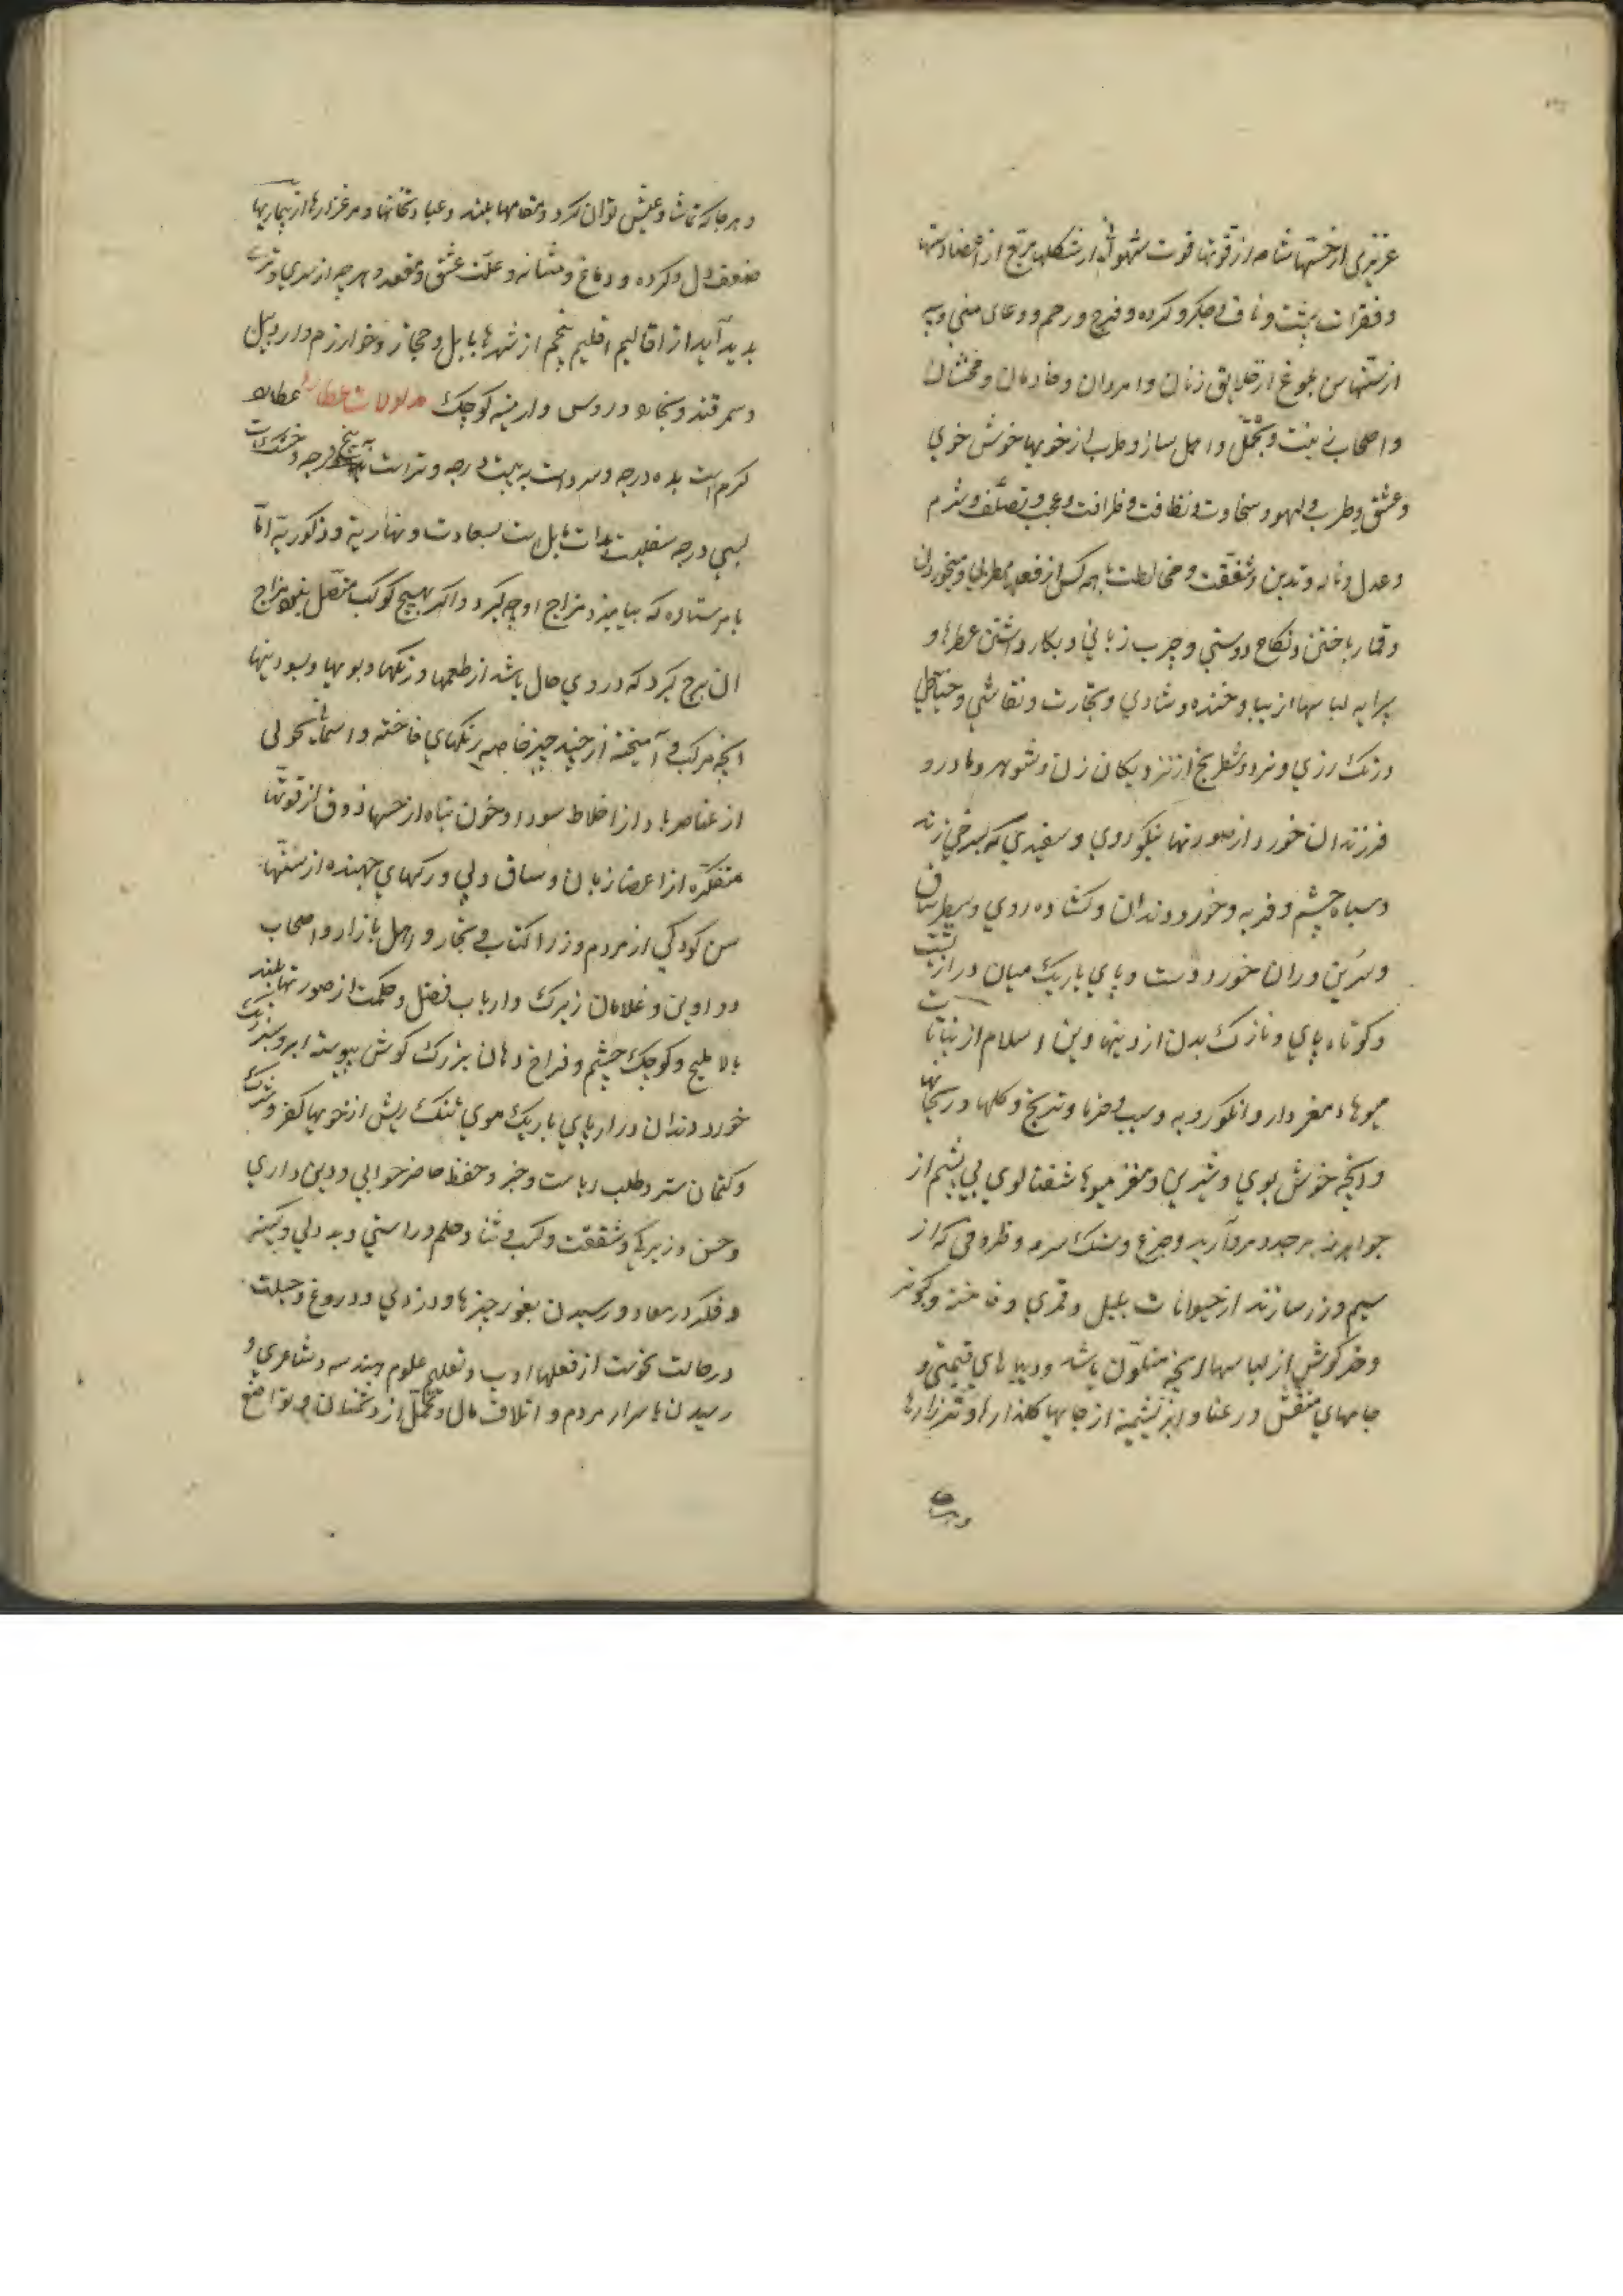 غریزی از حسّها شامه از قوتها قوت شهوانی از شکلها مربّع از اعضا دستها
و فقرات پشت و ناف و جکر و کرده و فرج و رحم و وعای منی و پیه
از سنّها سن بلوغ از خلایق زنان و امردان و خادمان و مخنثان
و اصحاب زینت و تجمّل و اهل ساز و طرب از خویها خوش خوی
و عشق و طرب و لهو و سخاوت و نظافت و ظرافت و عجب و تصلّف و شرم
و عدل و ناله و تدین و شفقت و مخالطت با همه کس از فعلها مطربی و میخوردن
و قمار باختن و نکاح دوستی و چرب زبانی و بکار داشتن عطرها و
پیرایه لباسها زیبا و خنده و شادی و تجارت و نقاشی و خیاطی
و رنک رزی و نرد و شطرنج از نزدیکان زن و شوهر و مادر و
فرزندان خورد از صورتها نیکو روی و سفیدی که بسرخی زند
و سیاه چشم و فربه و خورد دندان و کشاده روی و سطبر ساق
و سرین و ران خورد دست و پای باریک میان دراز پشت
و کوتاه پای و نازک بدن از دینها دین اسلام از نباتات
میوها مغز دار و انکور و به و سیب و خرما و ترنج و کلها و ریحانها
و انچه خوش بوی و شیرین و مغز میوها شفتالوی بی پشم از
جواهر زبرجد و مروارید و جزع و سنک سرمه و ظروفی که از
سیم و زر سازند از حیوانات بلبل و قمری و فاخته و کبوتر
و خرکوش از لباسها انچه متلوّن باشد و دیباهای قیمتی و
جامهای منقش و رعنا و ابریشمینه از جایها کلذارها و مرغزارها
و هر جا
و هر جا که تماشا و عیش توان کرد و مقامها بلند و عبادتخانها و مرغزارها از بیماریها
ضعف دل و کرده و دماغ و مثانه و علّت عشق و مقعد و هرچه از سردی و تری
پدید آید از اقالیم اقلیم پنجم از شهرها بابل و حجاز و خوارزم و اردبیل
و سمرقند و بخارا و روس و ارمنیه کوچک مدلولات عطارد عطارد
کرم است بده درجه و سرد است به بیست درجه و تر است به پنج درجه و خشک است
بسی درجه بذات مایل است بسعادت و نهاریة و ذکوریة امّا
با هر ستاره که بیامیزد مزاج او کیرد و اکر بهیچ کوکب متصل نبود مزاج
ان برج کیرد که در وی حال باشد از طعمها و رنکها و بویها و بسودنیها
انچه مرکب و آمیخته از چند چیز خاصه رنکهای فاخته و اسمانجونی
از عناصر باد از اخلاط سودا و خون تباه از حسها ذوق از قوتها
متفکره از اعضا زبان و ساق و پی و رکهای جهنده از سنّها
سن کودکی از مردم وزرا کتاب و تجار و اهل بازار و اصحاب
دواوین و غلامان زیرک و ارباب فضل و حکمت از صورتها بلند
بالا ملیح و کوچک چشم و فراخ دهان بزرک کوش پیوسته ابرو سبز رنک
خورد دندان دراز پای باریک موی تنک ریش از خویها کفر و شرک
و کتمان ستر و طلب ریاست و جبر و حفظ حاضر جوابی و دین داری
و حسن و زیرکی و شفقت و کرب و ثنا و حلم و راستی و بد دلی و کینه
و فکر در معاد و رسیدن بغور چیزها و دزدی و دروغ و حیلت
در حالت نحوست از فعلها ادب و تعلیم علوم هندسه و شاعری و
رسیدن باسرار مردم و اتلاف مال و تحمّل از دشمنان و تواضع